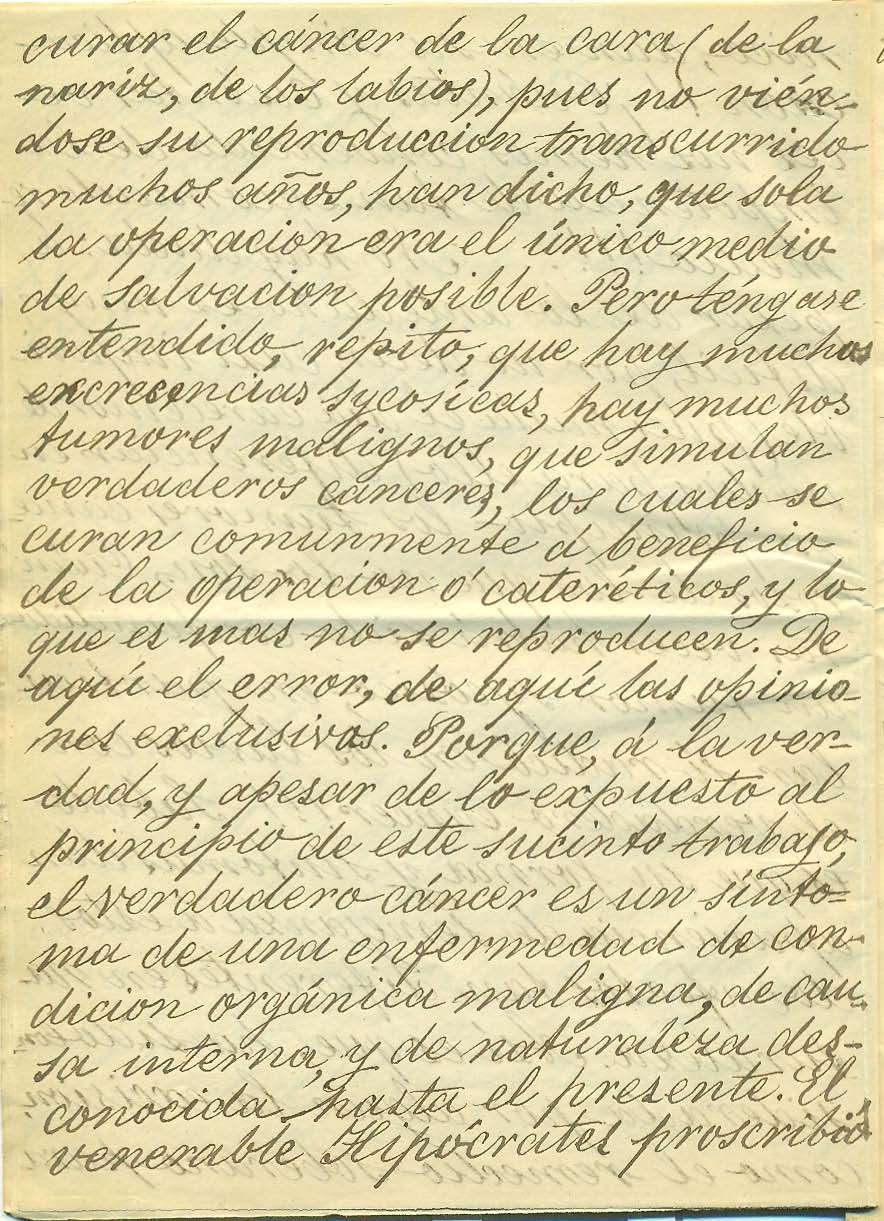 curar el cáncer de la cara (de la
nariz, de los labios), pues no vién-
dose su reproduccion transcurrido
muchos años, han dicho, que sola
la operacion era el único medio
de salvacion posible. Pero téngase
entendido, repito, que hay muchas
excrecencias sycosícas, hay muchos
tumores malignos, que simulan
verdaderos canceres, los cuales se
curan comunmente á beneficio
de la operacion ó cateréticos, y lo
que es mas no se reproducen. De
aquí el error, de aquí las opinio-
nes exclusivas. Porque, á la ver-
dad, y apesar de lo expuesto al
principio de este sucinto trabajo,
el verdadero cáncer es un sínto=
ma de una enfermedad de con-
dicion orgánica maligna, de cau-
sa interna, y de naturaleza des-
conocida hasta el presente. El
venerable Hipócrates proscribió